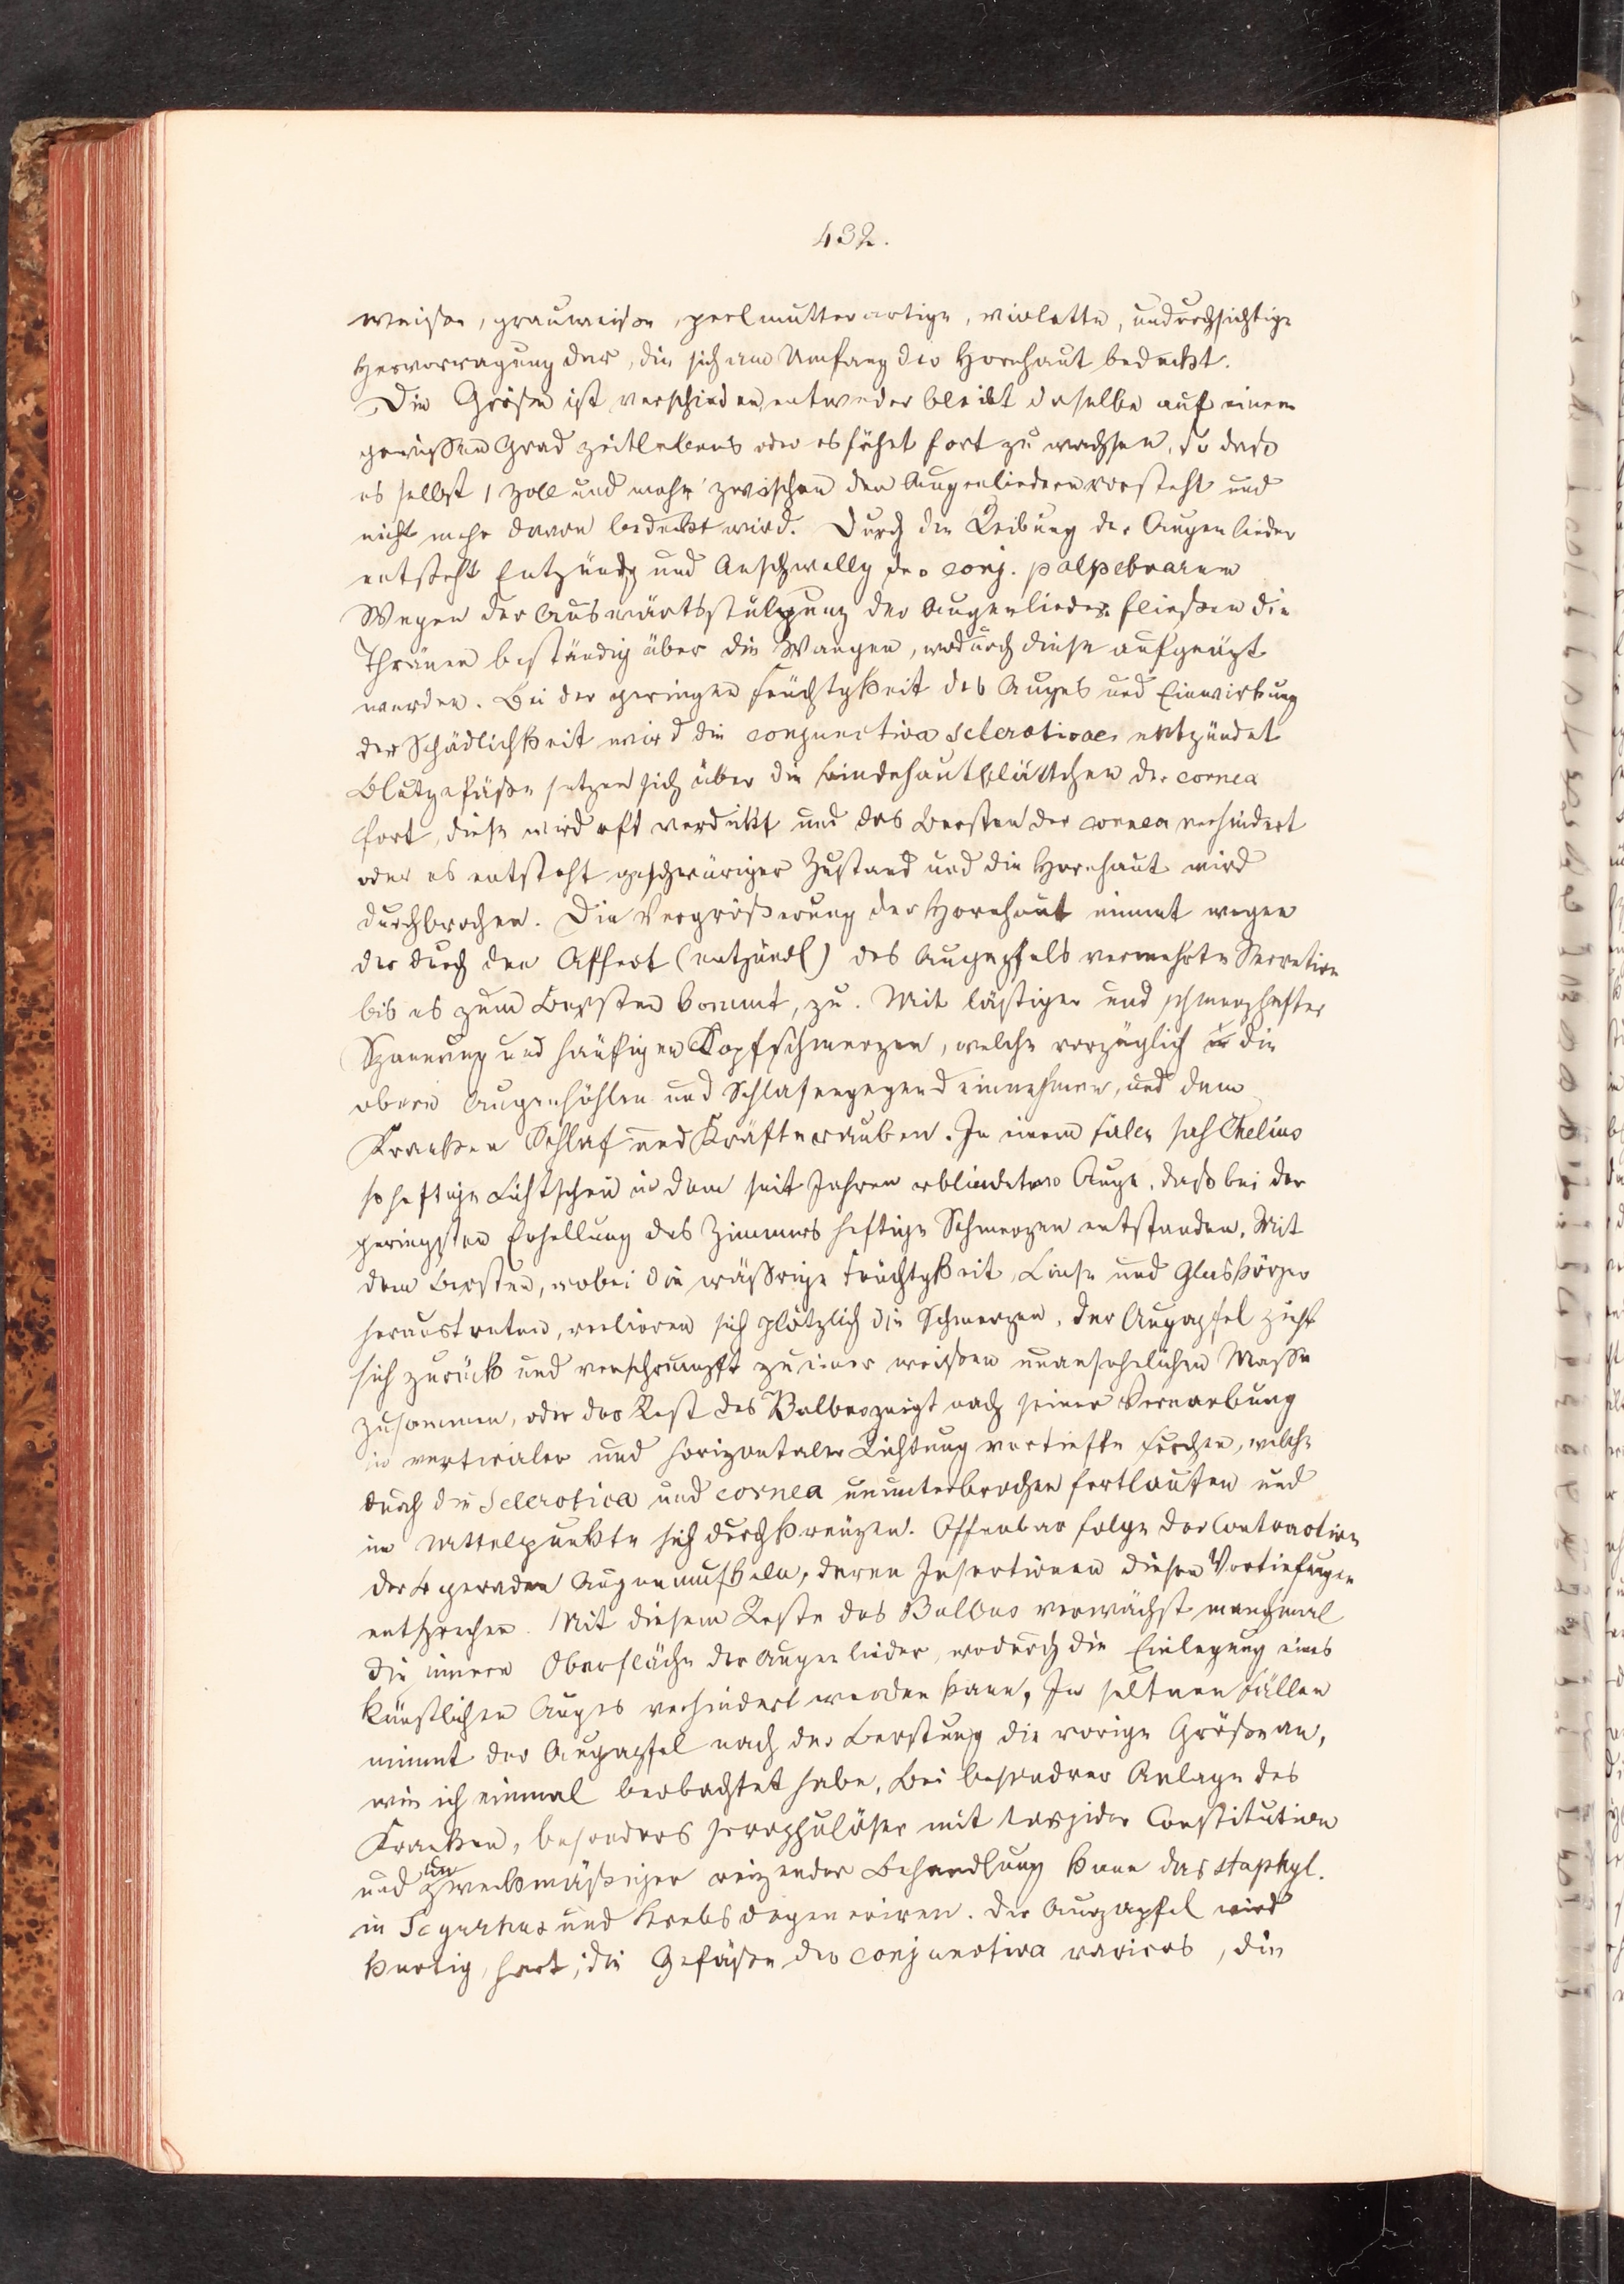 432.
weiße, grauweiße, perlmutterartige, violette, undurchsichtige
Hervorragung dar, die sich am Umfang der Hornhaut bedeckt.
Die Größe ist verschieden, entweder bleibt dieselbe auf einem
gewißen Grad zeitlebens oder es fährt fort zu wachsen, so daß
es selbst 1 Zoll und mehr zwischen den Augenliedern vorsteht und
nicht mehr davon bedeckt wird. Durch die Reibung der Augenlieder
entsteht Entzündg und Anschwellg der conj. palpebrarum
Wegen der Auswärtsstülpung der Augenlieder fließen die
Thränen beständig über die Wangen, wodurch diese aufgeäzt
werden. Bei der geringen Feuchtgkeit des Auges und Einwirkung
der Schädlichkeit wird die conjunctiva scleroticae entzündet
Blutgefäße setzen sich über die Bindehautblättchen der cornea
fort, diese wird oft verdickt und das Bersten der cornea verhindert
oder es entsteht geschwüriger Zustand und die Hornhaut wird
durchbrochen. Die Vergrößerung der Hornhaut nimmt wegen
der durch den Affect (entzündl) des Augapfels vermehrte Secretion
bis es zum Bersten kommt, zu. Mit lästiger und schmerzhafter
Spannung und häufigen Kopfschmerzen, welche vorzüglich die
obern Augenhöhlen und Schlafengegend einnehmen, und dem
Kranken Schlaf und Kräfte rauben. In einem Falle sah Chelius
so heftige Lichtscheu in dem seit Jahren erblindeten Auge, daß bei der
geringsten Erhellung des Zimmers heftige Schmerzen entstanden. Mit
dem Bersten, wobei die wäßrige Feuchtgkeit, Linse und Glaskörper
heraustreten, verlieren sich plötzlich die Schmerzen, der Augapfel zieht
sich zurück und verschrumpft zu einer weißen unansehnlichen Masse
zusammen, oder der Rest des Bulbus zeigt nach seiner Vernarbung
in verticaler und horizontaler Richtung vertiefte Furchen, welche
durch die Sclerotica und cornea ununterbrochen fortlaufen und
im Mittelpunkte sich durchkreuzen. Offenbar Folge der Contraction
der 4 geraden Augenmuskeln, deren Insertionen diesen Vertiefungen
entsprechen. Mit diesem Reste des Bulbus verwächst manchmal
die innere Oberfläche der Augenlieder, wodurch die Einlegung eines
künstlichen Auges verhindert werden kann. In seltnen Fällen
nimmt der Augapfel nach der Berstung die vorige Größe an,
wie ich einmal beobachtet habe. Bei besondrer Anlage des
Kranken, besonders scrophulöser mit torpider Constitution
und unzweckmäßiger reizender Behandlung kann das staphyl.
in Scyrrhus und Krebs degeneriren. Der Augapfel wird
hart, die Gefäße der conjunctiva varicos, die